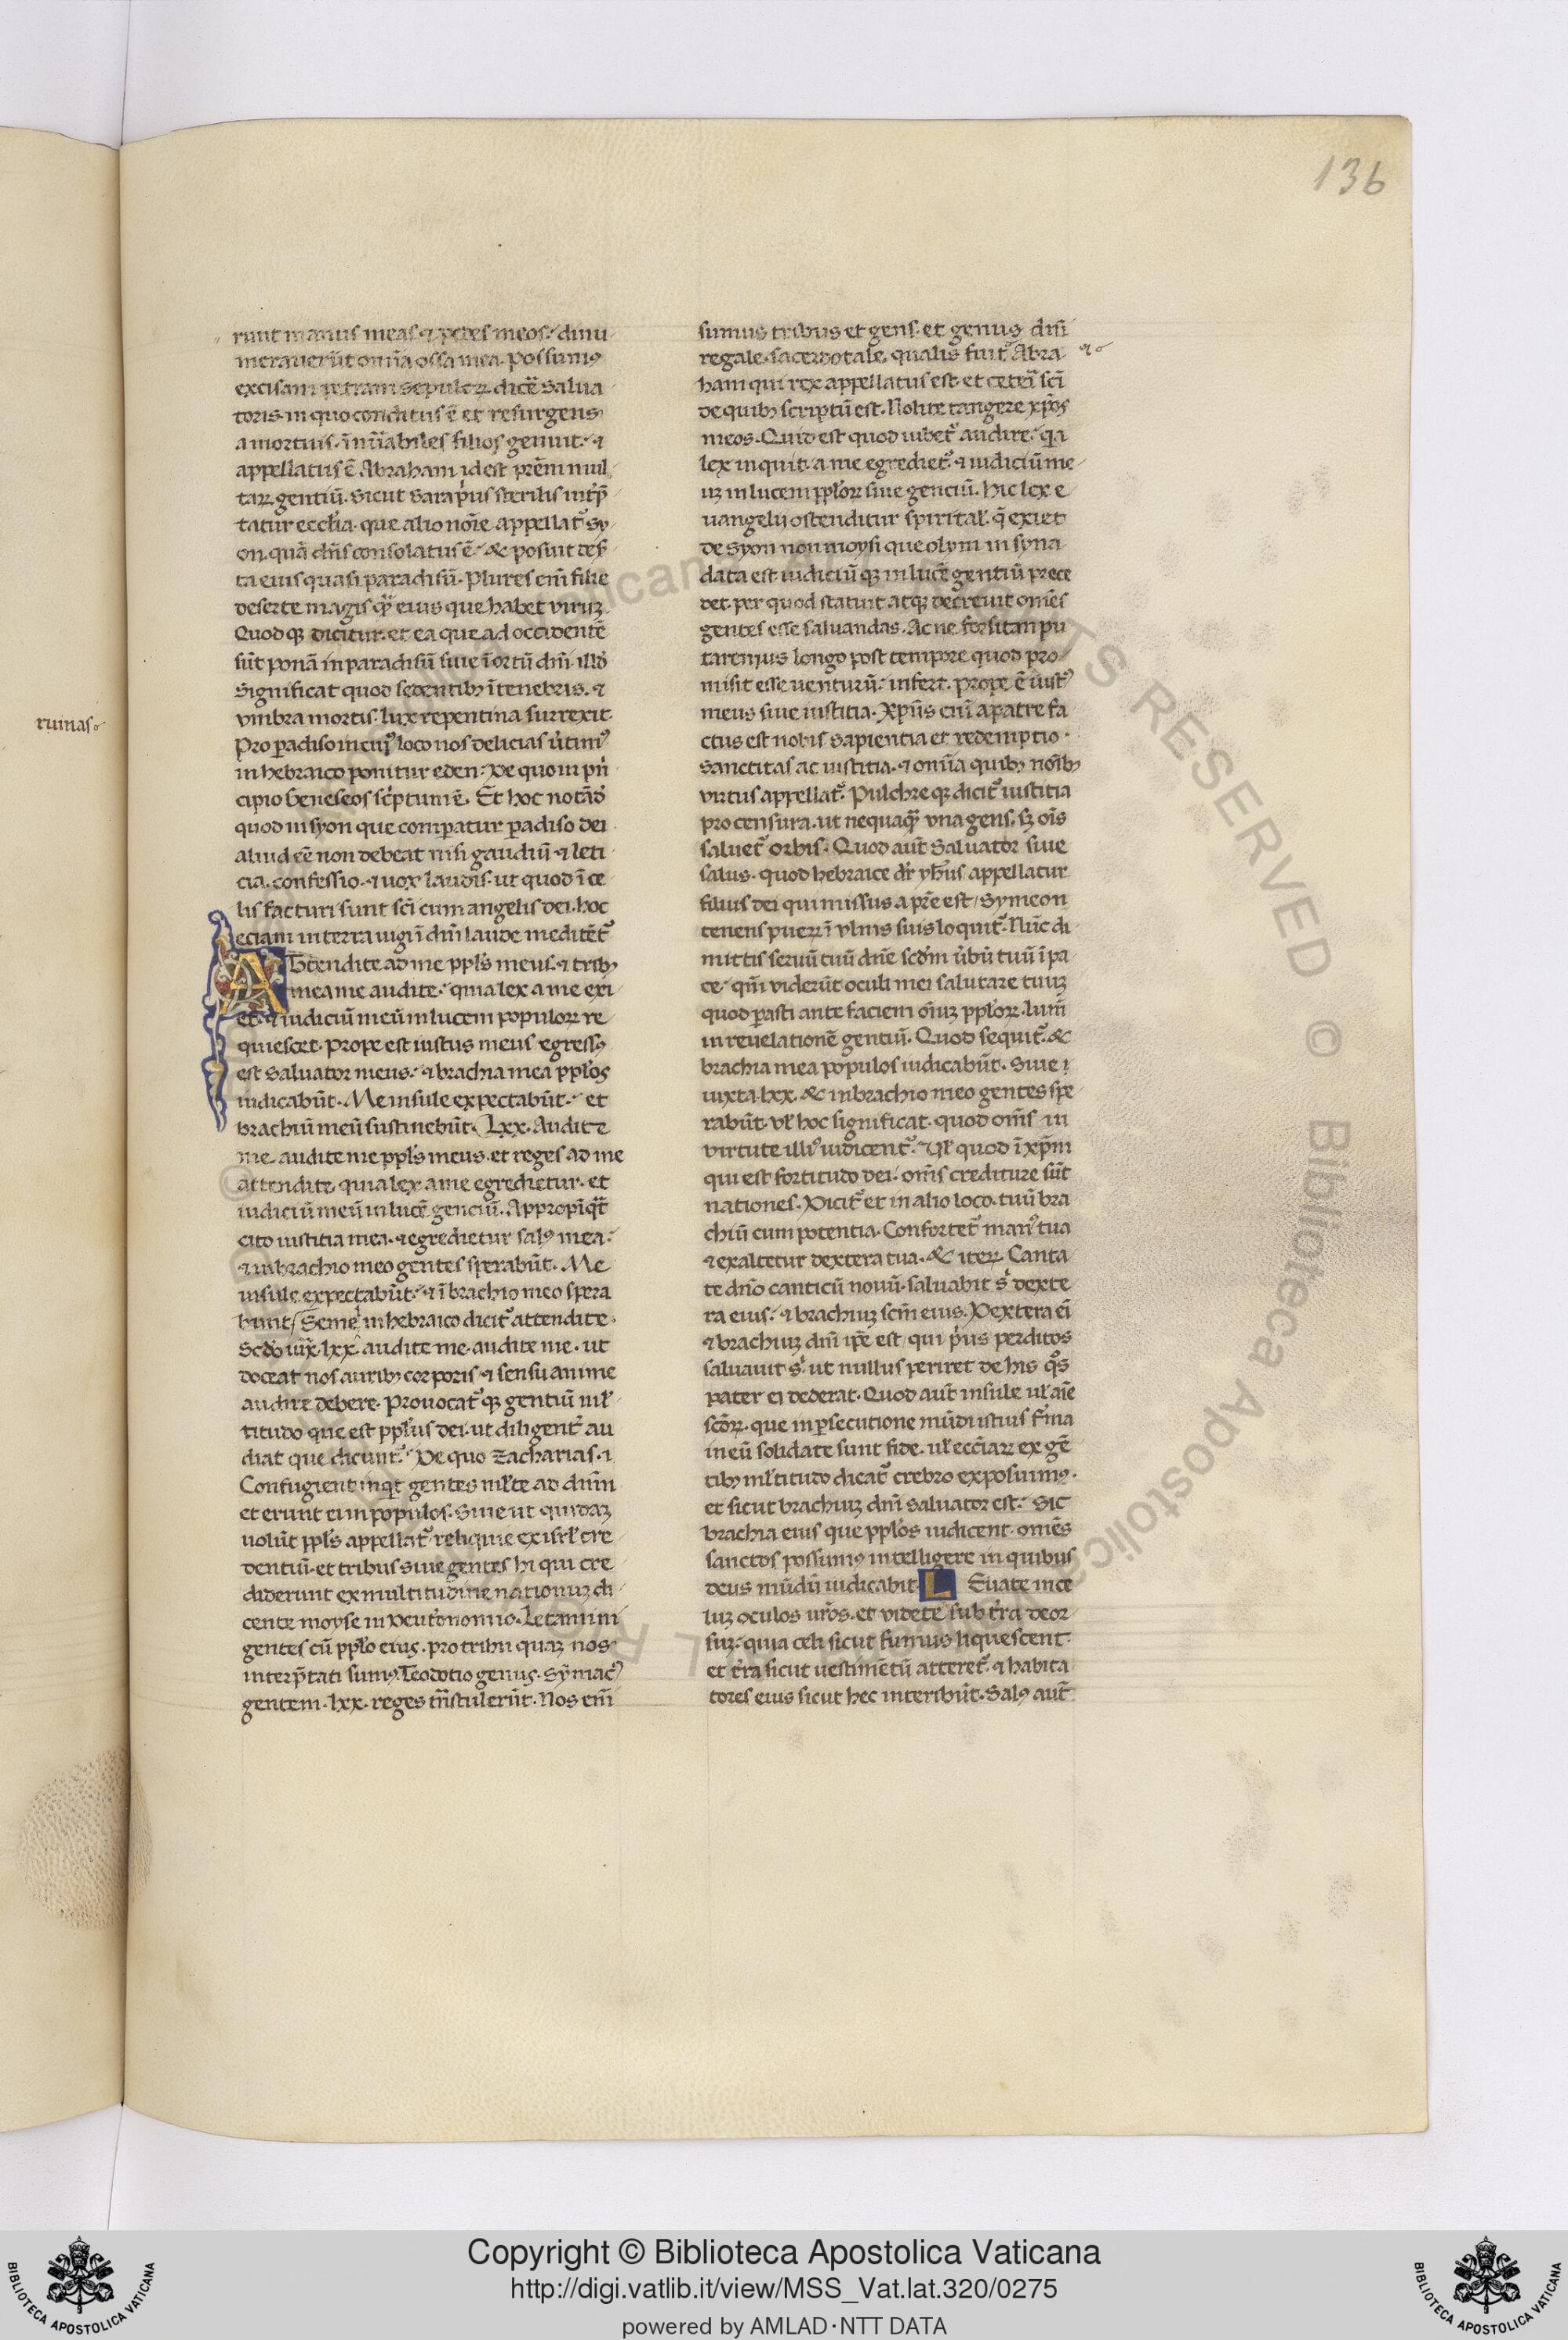 136
runt manus meas ⁊ pedes meos. dinu
merauerūt om̄ia ossa mea. possum⁹
excisam petram sepulcꝝ dicẽ salua
toris. in quo conditus ē et resurgens
a mortuis. ĩnũabiles filios genuit. ⁊
appellatus ē Abraham id est prēm mul
taꝝ gentiū. sicut Sara p̃us sterilis int̃p̃
tatur eccl̃ia. que alio noīe appellat᷑ sy
on. quā dn̄s consolatus ē. ⁊c posuit des̃
ta eius quasi paradisū. Plures em̄ filie
deserte magis qͣ̄ eius que habet uiruꝫ.
Quod qꝫ dicitur. et ea que ad occidentē
sūt ponā in paradisū siue ĩ ortū dn̄i. illd̄
significat quod sedentibꝫ ĩ tenebris. ⁊
vmbra mortis. lux repentina surrexit.
Pro padiso in cuiꝰ loco nos delicias ũtimꝰ
in hebraico ponitur eden. De quo in pn̄
cipio Geneseos sc̃ptum ē. Et hoc notād̄
quod in syon que compatur padiso dei
aliud eē non debeat nisi gaudiū ⁊ leti
cia. confessio. ⁊ uox laudis. ut quod ĩ ce
lis facturi sunt sc̄i cum angelis dei. hoc
eciam in terra iugi ĩ dn̄i laude meditēt᷑
Attendite ad me ppl̃s meus. ⁊ tribꝫ
mea me audite. quia lex a me exi
et. ⁊ iudiciū meū in lucem populoꝝ re
quiescet. Prope est iustus meus egressꝰ
est saluator meus. ⁊ brachia mea ppl̃os
iudicabūt. Me insule expectabūt. et
brachiū meū sustinebūt. Lxx. Audite
me. audite me ppl̃s meus. et reges ad me
attendite. quia lex a me egredietur. et
iudiciū meū in lucē genciū. Appropīqͣt
cito iustitia mea. ⁊ egredietur salꝰ mea.
⁊ in brachio meo gentes sperabūt. Me
insule expectabūt. ⁊ ĩ brachio meo spera
bunt. Semel̃ in hebraico dicit᷑ attendite.
Scd̄o uix̃ lxx. audite me. audite me. ut
doceat nos auribꝫ corporis. ⁊ sensu anime
audire debere. Prouocat᷑ qꝫ gentiū ml̃
titudo que est ppl̃us dei. ut diligent᷑ au
diat que dicunt᷑. De quo Zacharias. ⁊
Confugient inqͥt gentes ml̃te ad dn̄m
et erunt ei in populos. Siue ut quidaꝫ
uolūt ppl̃s appellat᷑ reliquie ex isrl̃ cre
dentiū. et tribus siue gentes hi qui cre
diderunt ex multitudine nationuꝫ di
cente moyse in Deut̃onomio. Letamini
gentes cū ppl̃o eius. pro tribu quaꝫ nos
interp̃tati sumꝰ. Teodotio genus. Sȳmacꝰ
gentem. lxx. reges tn̄stulerūt. Nos em̄
sumus tribus et gens. et genus dn̄i
regale. sacerdotale. qualis fuit Abra
ham qui rex appellatus est. et ceteri sc̄i
de quibꝫ scriptū est. Nolite tangere xp̄os
meos. Quid est quod iubet᷑ audire. qͣ
lex inquit. a me egrediet᷑. ⁊ iudiciū me
uꝫ in lucem ppl̃oꝝ siue genciū. hic lex e
uangelij ostenditur spirital̃. q̄ exiet
de syon non moysi que olym in syna
data est iudiciū qꝫ in lucē gentiū prece
det. per quod statuit atqꝫ decreuit om̄es
gentes esse saluandas. Ac ne forsitan pu
taremus longo post tempore quod pro
misit esse uenturū. infert. prope ē iustꝰ
meus siue iustitia. Xp̄us em̄ a patre fa
ctus est nobis sapientia et redemptio.
sanctitas ac iustitia. ⁊ om̄ia quibꝫ noībꝫ
virtus appellat᷑. Pulchre qꝫ dicit᷑ iustitia
pro censura. ut nequaqͣ̄ vna gens. sꝫ oīs
saluet᷑ orbis. Quod aut̄ Saluator siue
salus. quod hebraice dr̄ yh̄us appellatur
filius dei qui missus a pr̄e est. Symeon
tenens pueꝝ ĩ vlnis suis loquit᷑. Nūc di
mittis seruū tuū dn̄e scd̄m ũbū tuū ĩ pa
ce. qm̄ uiderūt oculi mei salutare tuuꝫ
quod pasti ante faciem oīuꝫ ppl̃oꝝ. lum̄
in reuelationē gentiū. Quod sequit᷑. ⁊c
brachia mea populos iudicabūt. Siue ⁊
iuxta lxx. ⁊c in brachio meo gentes spe
rabūt. ul̃ hoc significat. quod om̄s in
virtute illiꝰ iudicent᷑. Ul̃ quod ĩ xp̄m
qui est fortitudo dei. om̄s crediture sūt
nationes. Dicit᷑ et in alio loco. tuū bra
chiū cum potentia. Confortet᷑ manꝰ tua
⁊ exaltetur dextera tua. ⁊c iteꝝ. Canta
te dn̄o canticū nouū. saluabit s̄ dexte
ra eius. ⁊ brachiuꝫ sc̄m eius. Dextera ei
⁊ brachiuꝫ dn̄i ip̄e est qui p̃us perditos
saluauit s̄. ut nullus periret de his qͦs
pater ei dederat. Quod aut̄ insule ul̃ aīe
sc̄oꝝ. que in psecutione mūdi istius f̃ma
meū solidate sunt fide. ul̃ eccl̃iaꝝ ex gē
tibꝫ ml̃titudo dicat᷑ crebro exposuimꝰ.
et sicut brachiuꝫ dn̄i saluator est. sic
brachia eius que ppl̃os iudicent. om̄es
sanctos possumꝰ intelligere in quibus
deus mūdū iudicabit. LEuate in ce
luꝫ oculos ur̄os. et videte sub t̃ra deor
suꝫ. quia celi sicut fumus liquescent.
et t̃ra sicut uestimētū atteret᷑. ⁊ habita
tores eius sicut hec interibūt. Salꝰ aut̄
ruinas
Copyright © Biblioteca Apostolica Vaticana
http://digi.vatlib.it/view/MSS_Vat.lat.320/0275
powered by AMLAD·NTT DATA
BIBLIOTECA APOSTOLICA VATICANA
BIBLIOTECA APOSTOLICA VATICANA